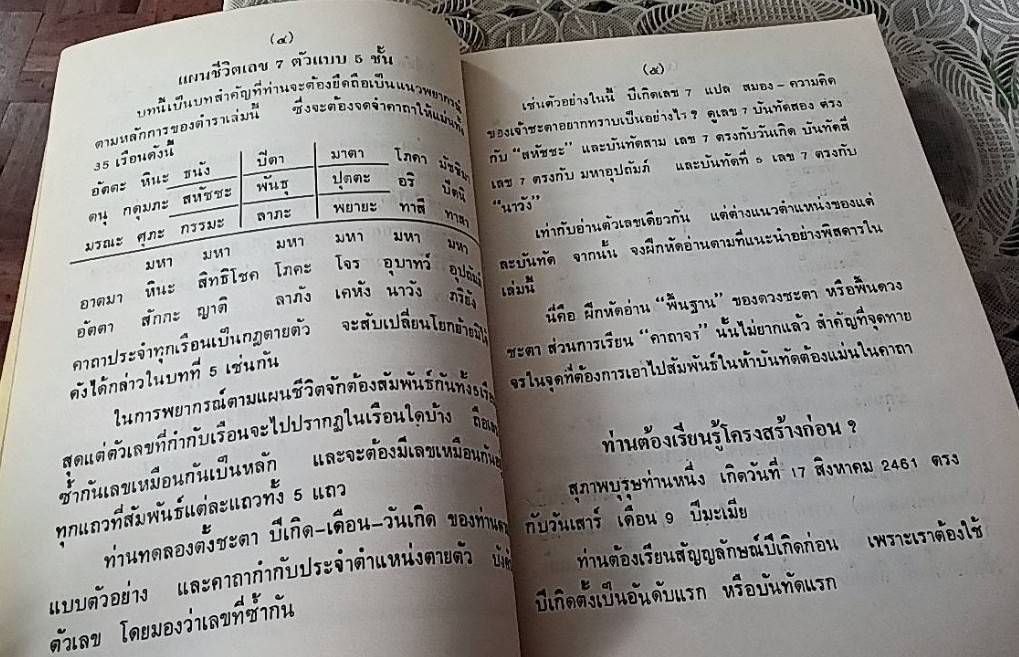 (๔)
แผนชีวิตเลข 7 ตัวแบบ 5 ชั้น
บทนี้เป็นบทสำคัญที่ท่านจะต้องยึดถือเป็นแนวพยากรณ์
ตามหลักการของตำราเล่มนี้ ซึ่งจะต้องจดจำคาถาให้แม่นทั้ง
35 เรือนดังนี้
อัตตะ หินะ ธนัง ปีตา มาตา โภคา มัชฌิมา
ตนุ กดุมภะ สหัชชะ พันธุ ปุตตะ อริ ปัตนิ
มรณะ ศุภะ กรรมะ ลาภะ พยายะ ทาสี ทาสา
มหา มหา มหา มหา มหา มหา
อาตมา หินะ สิทธิโชค โภคะ โจร อุบาทว์ อุปถัมภ์
อัตตา สักกะ ญาติ ลาภัง เคหัง นาวัง ภริยัง
คาถาประจำทุกเรือนเป็นกฎตายตัว จะสับเปลี่ยนโยกย้ายมิได้
ดังได้กล่าวในบทที่ 5 เช่นกัน
ในการพยากรณ์ตามแผนชีวิตจักต้องสัมพันธ์กันทั้ง
สุดแต่ตัวเลขที่กำกับเรือนจะไปปรากฏในเรือนใดบ้าง
ซ้ำกันเลขเหมือนกันเป็นหลัก และจะต้องมีเลขเหมือนกัน
ทุกแถวที่สัมพันธ์แต่ละแถวทั้ง 5 แถว
ท่านทดลองตั้งชะตา ปีเกิด-เดือน-วันเกิด ของท่าน
แบบตัวอย่าง และคาถากำกับประจำตำแหน่งตายตัว
ตัวเลข โดยมองว่าเลขที่ซ้ำกัน
(๕)
เช่นตัวอย่างในนี้ ปีเกิดเลข 7 แปล สมอง-ความคิด
ของเจ้าชะตาอยากทราบเป็นอย่างไร? ดูเลข 7 บันทัดสอง ตรง
กับ "สหัชชะ" และบันทัดสาม เลข 7 ตรงกับวันเกิด บันทัดสี่
เลข 7 ตรงกับ มหาอุปถัมภ์ และบันทัดที่ 5 เลข 7 ตรงกับ
"นาวัง"
เท่ากับอ่านตัวเลขเดียวกัน แต่ต่างแนวตำแหน่งของแต่
ละบันทัด จากนั้น จงฝึกหัดอ่านตามที่แนะนำอย่างพิสดารใน
เล่มนี้
นี่คือ ฝึกหัดอ่าน "พื้นฐาน" ของดวงชะตา หรือพื้นดวง
ชะตา ส่วนการเรียน "คาถาจร" นั้นไม่ยากแล้ว สำคัญที่จุดทาย
จรในจุดที่ต้องการเอาไปสัมพันธ์ในห้าบันทัดต้องแม่นในคาถา
ท่านต้องเรียนรู้โครงสร้างก่อน ?
สุภาพบุรุษท่านหนึ่ง เกิดวันที่ 17 สิงหาคม 2461 ตรง
กับวันเสาร์ เดือน 9 ปีมะเมีย
ท่านต้องเรียนสัญญลักษณ์ปีเกิดก่อน เพราะเราต้องใช้
ปีเกิดตั้งเป็นอันดับแรก หรือบันทัดแรก